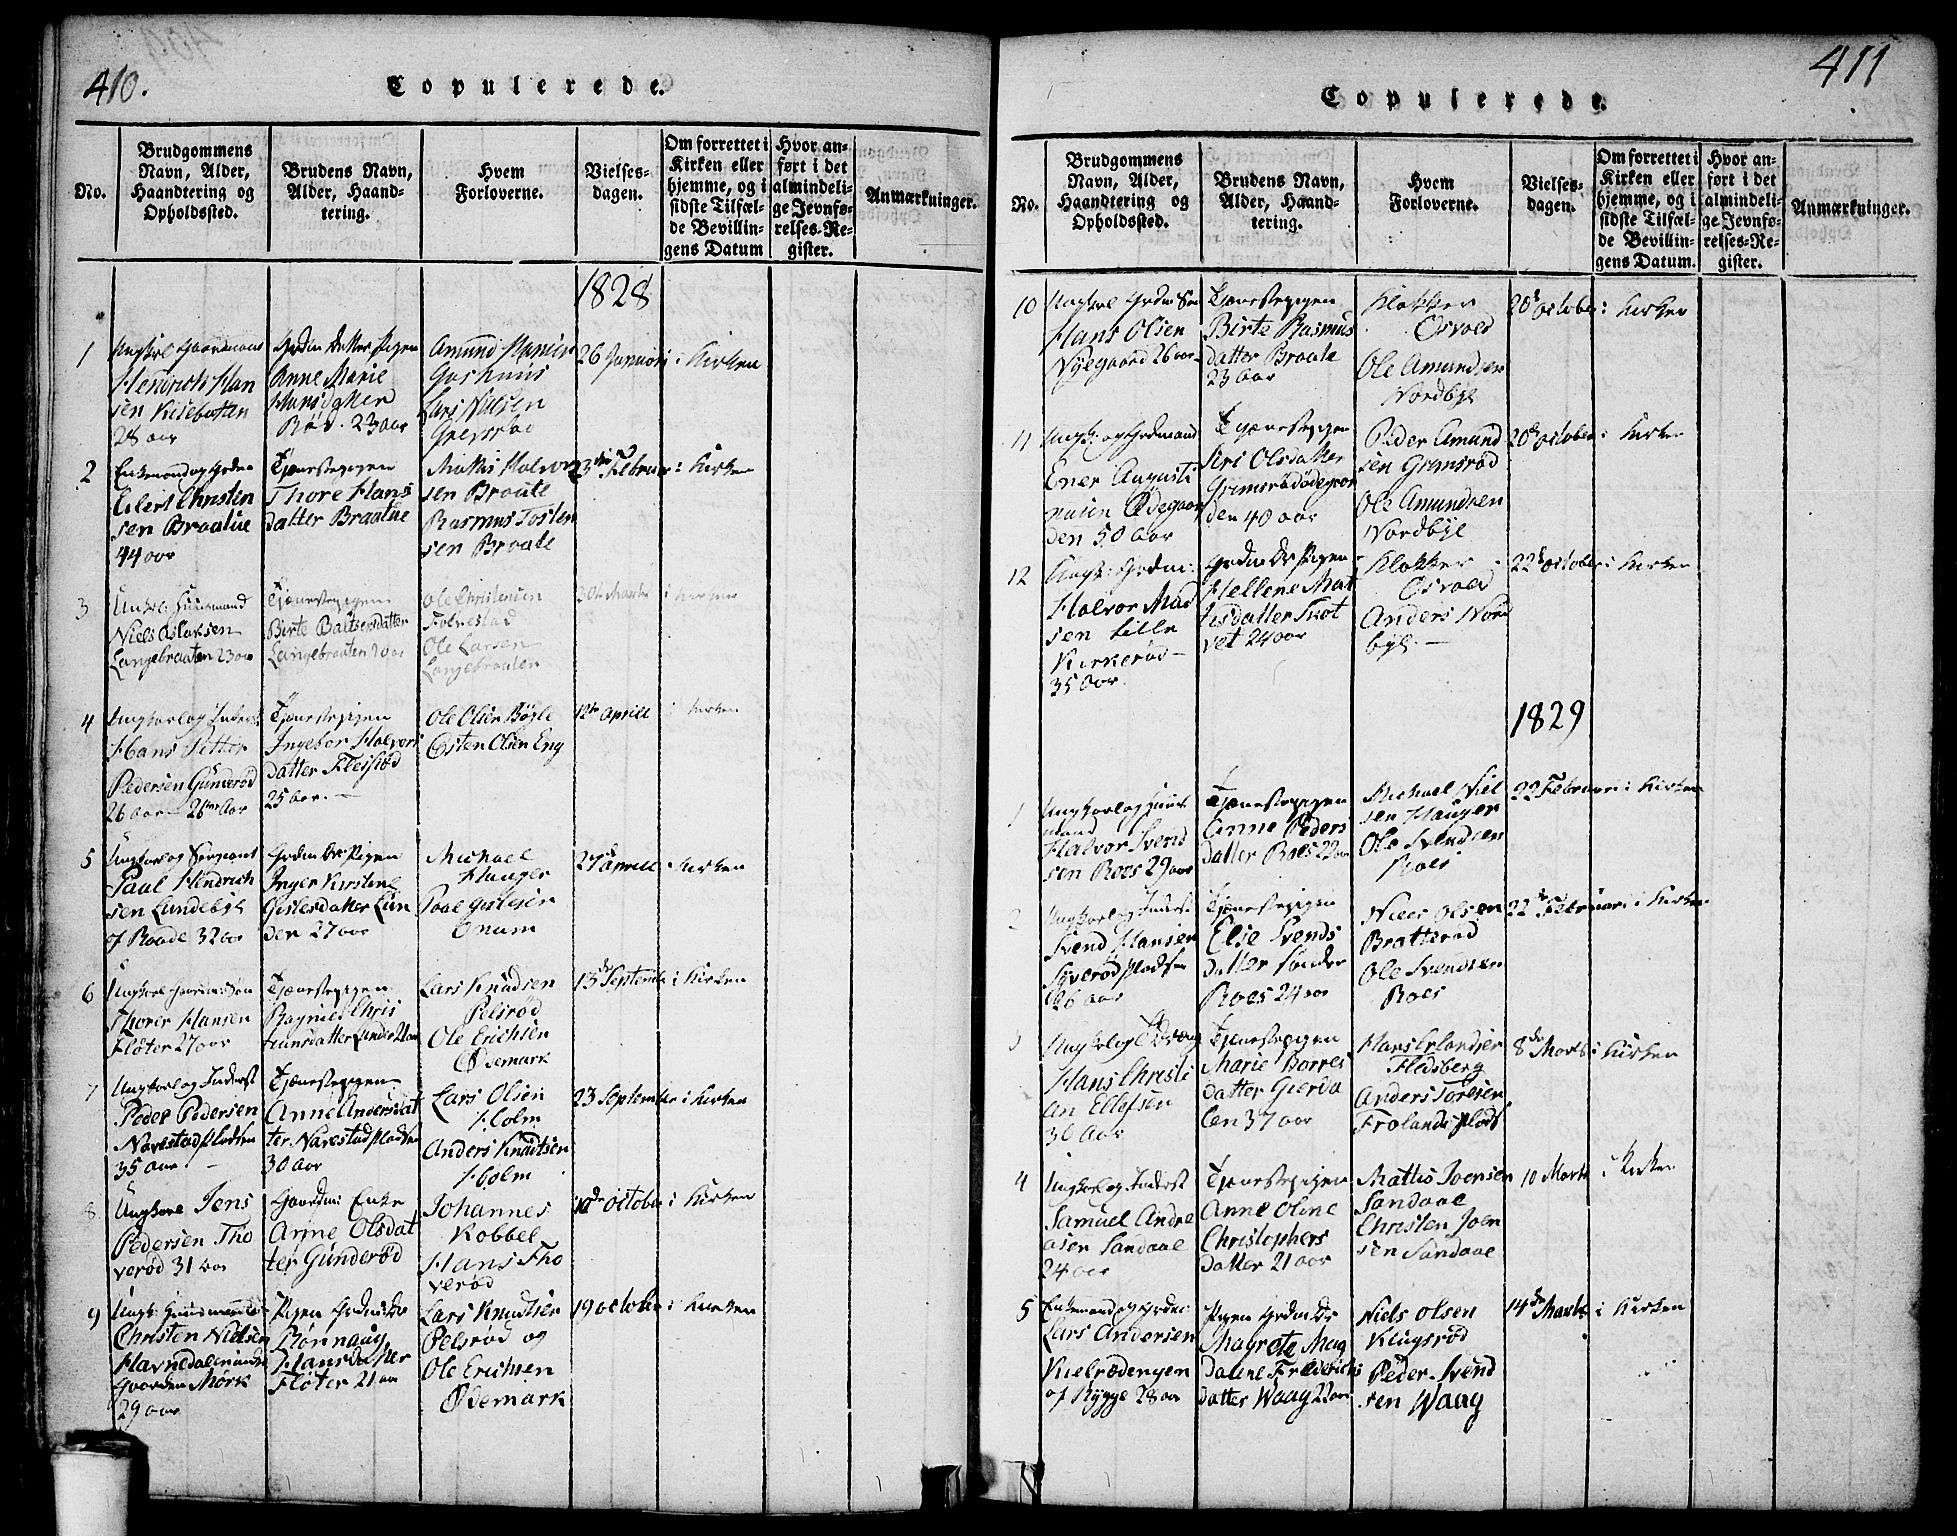 410.
Copulerede.
No.
Brudgommens
Navn, Alder,
Haandtering og
Opholdssted.
Brudens Navn,
Alder, Haand-
tering.
Hvem
Forloverne.
Vielses-
dagen.
Om forrettet i
Kirken eller
hjemme, og i
sidste Tilfæl-
de Bevillin-
gens Datum
Hvor an-
ført i det
almindeli-
ge Jevnfø-
relses-Re-
gister.
Anmærkninger.
1828
1
Hendrich Han
sen
28 aar
Anne Marie
Hansdatter
Rød. 23 aar
Amund
Lars Nilsen
26 Januari
i Kirken
2
Eilert Christen
sen Braatue
44 aar
Tjenestepigen
Thore Hans
datter Braatue
Mathis Halvor
sen Braate
Rasmus Tosten
sen Braate
Februar
i Kirken
3
Niels Aslaksen
Langebraaten 23 aar
Tjenestepigen
Birte Baltsersdatter
Langebraaten
Ole Christensen
Folvestad
Ole Larsen
Langebraaten
30te Marts
i Kirken
4
Hans Petter
Pedersen Gunderød
26 aar
Tjenestepigen
Ingebor Halvors
datter
25 aar. —
Ole Olsen Bøgle
Osten Olsen Eng
12te Aprill
i Kirken
5
Paul Hendrich
sen Lundebye
af Raade 32 aar
Inger Kirstine
Gislesdatter Lun
den 27 aar
Michael
Hauger
Paal Gislesen
Onum
27de Aprill
i Kirken
6
Thorer Hansen
Fløter 27 aar
Tjenestepigen
Lars Knudsen
Pelsrød
Ole Erichsen
Ødemark
13de Septembr
i Kirken
7
Peder Pedersen
Navestadpladsen
35 aar
Tjenestepigen
Anne Andersdat
ter Navestadpladsen
30 aar
Lars Olsen
Holm
Anders Knudtsen
Holm
23 September
i Kirken
8
Ungkarl Jens
Pedersen Tho
verød 31 aar
Enke
Anne Olsdat
ter Gunderød
Johannes
Kobbel
Hans Tho
verød
October
i Kirken
9
Christen Nielsen
Mørk
29 aar
Ronnaug
Hansdatter
Fløter 21 aar
Lars Knudtsen
Pelsrød og
Ole Erichsen
Ødemark
19 October
i Kirken
411
Copulerede.
No.
Brudgommens
Navn, Alder,
Haandtering og
Opholdssted.
Brudens Navn,
Alder, Haand-
tering.
Hvem
Forloverne.
Vielses-
dagen.
Om forrettet i
Kirken eller
hjemme, og i
sidste Tilfæl-
de Bevillin-
gens Datum.
Hvor an-
ført i det
almindeli-
ge Jevnfø-
relses-Re-
gister.
Anmærkninger.
10
Hans Olsen
Nyegaard 26 aar
Tjenestepigen
Birte Rasmus
datter Braate
23 aar
Klokker
Osvold
Ole Amundsen
Nordbye
20de October
i Kirken
11
Ener Augusti
nusen Ødegaar
den 50 aar
Tjenestepigen
Siri Olsdatter
Grimsrødødegaar
den 40 aar
Peder Amund
sen Grimsrød
Ole Amundsen
Nordbye
20de October
i Kirken
12
Halvor Mad
sen Lille
Kirkerød —
35 aar
Hellene Mat
tisdatter Skot
vet 24 aar
Klokker
Osvold
Anders Nord
bye. —
22de October
i Kirken
1829
1
Halvor Svend
sen Roes 29 aar
Tjenestepigen
Anne Peders
datter Roes 22 aar
Michael Niel
sen Hauger
Ole Svendsen
Roes
22 Februari
i Kirken
2
Svend Hansen
26 aar
Tjenestepigen
Else Svends
datter Søndre
Roes 24 aar
Niels Olsen
Bratterød
Ole Svendsen
Roes
22de Februari
i Kirken
3
Hans Christi
an Ellefsen
30 aar
Tjenestepigen
Marie Borres
datter Gierda
len 37 aar
Hans Erlandsen
Fledsberg
Anders Toresen
Frolands plads
8de Marts
i Kirken
4
Ungkarl og Inderst
Samuel Andre
asen Sandaae
24 aar
Tjenestepigen
Anne Oline
Christophers
datter 21 aar
Mattis Joensen
Sandaae
Christen Joen
sen Sandaae
10 Marts
i Kirken
5
Lars Andersen
Kielrødengen
af Rygge 28 aar
Magrete Mag
dalene Fredrichs
datter Waag 22 aar
Niels Olsen
Klugsrød
Peder Svend
sen Waag
14de Marts
i Kirken